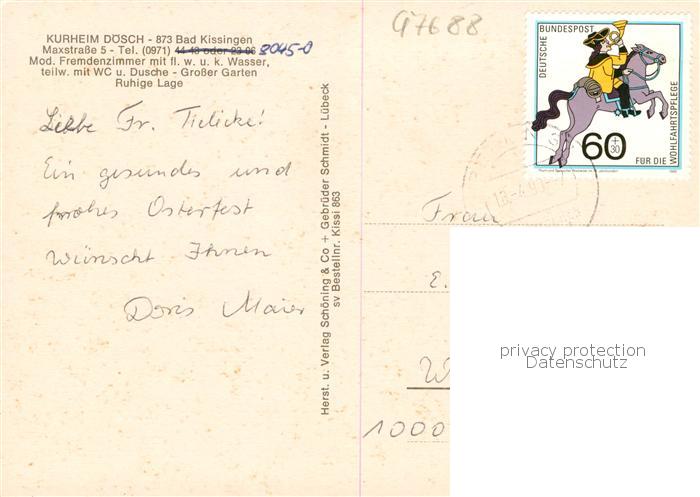 KURHEIM DÖSCH - 873 Bad Kissingen
Maxstraße 5 - Tel. (0971) 44 43 oder 23 06 8045-0
Mod. Fremdenzimmer mit fl. w. u. k. Wasser,
teilw. mit WC u. Dusche - Großer Garten
Ruhige Lage
Liebe Fr. Tielicke!
Ein gesundes und
frohes Osterfest
wünscht Ihnen
Doris Maier
Herst. u. Verlag Schöning & Co + Gebrüder Schmidt - Lübeck
sv Bestellnr. Kissi 863
a7688
DEUTSCHE BUNDESPOST
60
+
30
FÜR DIE
WOHLFAHRTSPFLEGE
Frau
E.
W
1000
privacy protection
Datenschutz